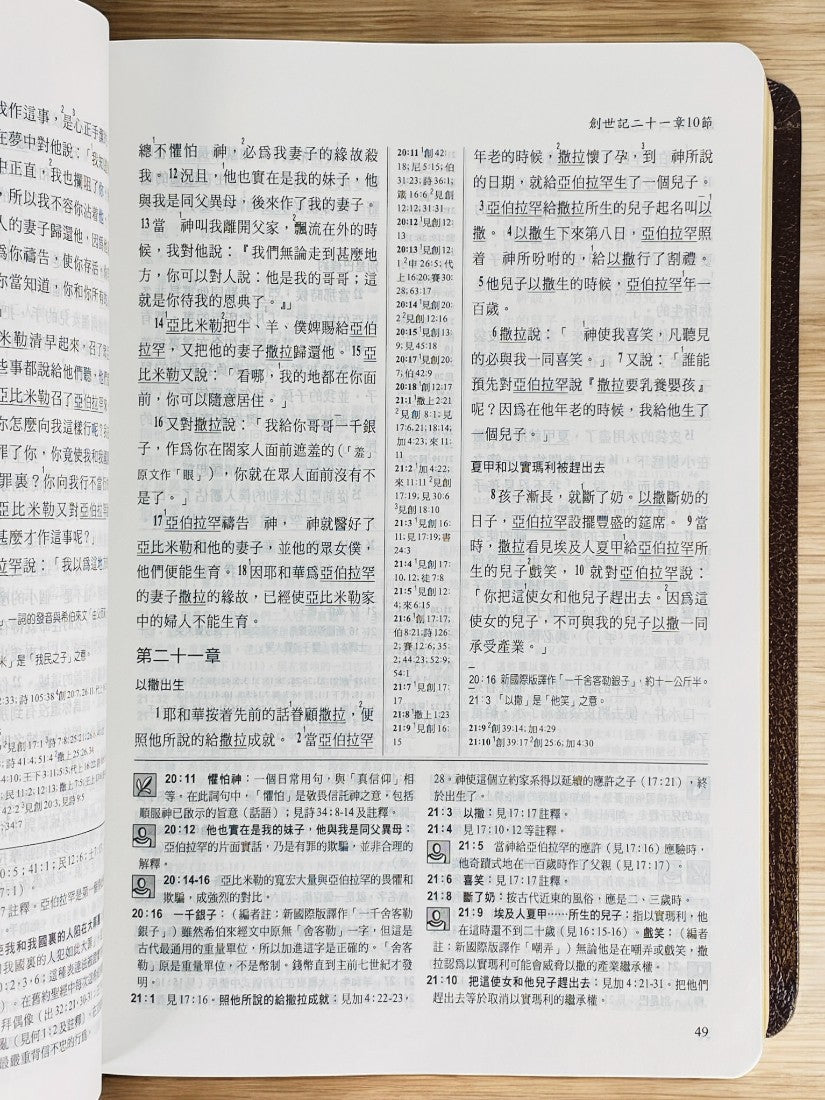 我作這事,是心正手
在夢中對他說:「我
中正直,我也攔阻了你
,所以我不容你沾着他
人的妻子歸還他,因為
為你禱告,使你存活
你當知道,你和你所有
米勒清早起來,召了
些事都說給他們聽,他們
亞比米勒召了亞伯拉
你怎麼向我這樣行呢?我
罪了你,你竟使我和我國
罪裏?你向我行不當行
亞比米勒又對亞伯拉
甚麼才作這事呢?」
拉罕說:「我以為這地
創世記二十一章10節
總不懼怕 神,必為我妻子的緣故殺
我。12況且,他也實在是我的妹子,他
與我是同父異母,後來作了我的妻子。
13 當 神叫我離開父家,飄流在外的時
候,我對他說:『我們無論走到甚麼地
方,你可以對人說:他是我的哥哥;這
就是你待我的恩典了。』」
14 亞比米勒把牛、羊、僕婢賜給亞伯
拉罕,又把他的妻子撒拉歸還他。15 亞
比米勒又說:「看哪,我的地都在你面
前,你可以隨意居住。」
16 又對撒拉說:「我給你哥哥一千銀
子,作為你在閤家人面前遮羞的(「羞」
原文作「眼」),你就在眾人面前沒有不
是了。」
17 亞伯拉罕禱告 神, 神就醫好了
亞比米勒和他的妻子,並他的眾女僕,
他們便能生育。18 因耶和華為亞伯拉罕
的妻子撒拉的緣故,已經使亞比米勒家
中的婦人不能生育。
第二十一章
以撒出生
1耶和華按着先前的話眷顧撒拉,便
照他所說的給撒拉成就。 2當亞伯拉罕
20:11 1創42
:18;尼5:15;伯
31:23;詩36:1;
箴16:6 2見創
12:12;31:31
20:12 1見創12:
13
20:13 1見創12:
1 2申26:5;代
上16:20;賽30:
28;63:17
20:14 1見創20:
2 2見創12:16
20:15 1見創13:
9;見45:18
20:17 1見創20:
7;伯42:9
20:18 1創12:17
21:1 1撒上2:21
2見創8:1;見
17:16,21;18:14;
加4:23;來11:
11
21:2 1加4:22;
來11:11 2見創
17:19;見30:6
3見創18:10
21:3 1見創16:
11;見17:19;書
24:3
21:4 1見創17:
10,12;徒7:8
21:5 1見創12:
4;來6:15
21:6 1見創17:17;
伯8:21;詩126:
2;賽12:6,35:
2;44:23,52:9;
54:1
21:7 1見創17:
17
21:8 1撒上1:23
21:9 1見創16:
15
年老的時候,撒拉懷了孕,到 神所說
的日期,就給亞伯拉罕生了一個兒子。
3亞伯拉罕給撒拉所生的兒子起名叫以
撒。 4以撒生下來第八日,亞伯拉罕照
着 神所吩咐的,給以撒行了割禮。
5他兒子以撒生的時候,亞伯拉罕年一
百歲。
6撒拉說:「 神使我喜笑,凡聽見
的必與我一同喜笑。」 7又說:「誰能
預先對亞伯拉罕說『撒拉要乳養嬰孩』
呢?因為在他年老的時候,我給他生了
一個兒子。」
夏甲和以實瑪利被趕出去
8孩子漸長,就斷了奶。以撒斷奶的
日子,亞伯拉罕設擺豐盛的筵席。 9當
時,撒拉看見埃及人夏甲給亞伯拉罕所
生的兒子戲笑,10 就對亞伯拉罕說:
「你把這使女和他兒子趕出去。因為這
使女的兒子,不可與我的兒子以撒一同
承受產業。」
20:16 新國際版譯作「一千舍客勒銀子」,約十一公斤半。
21:3 「以撒」是「他笑」之意。
21:9 2創39:14;加4:29
21:10 1創39:17 2創25:6;加4:30
20:11 懼怕神:一個日常用句,與「真信仰」相
等。在此詞句中,「懼怕」是敬畏信託神之意,包括
順服神已啟示的旨意(話語);見詩34:8-14及註釋。
20:12 他也實在是我的妹子,他與我是同父異母:
亞伯拉罕的片面實話,乃是有罪的欺騙,並非合理的
解釋。
20:14-16 亞比米勒的寬宏大量與亞伯拉罕的畏懼和
欺騙,成強烈的對比。
20:16 一千銀子:(編者註:新國際版譯作「一千舍客勒
銀子」)雖然希伯來經文中原無「舍客勒」一字,但這是
古代最通用的重量單位,所以加進這字是正確的。「舍客
勒」原是重量單位,不是幣制。錢幣直到主前七世紀才發
明。
21:1 見17:16。照他所說的給撒拉成就:見加4:22-23,
28。神使這個立約家系得以延續的應許之子(17:21),終
於出生了。
21:3 以撒:見17:17註釋。
21:4 見17:10、12等註釋。
21:5 當神給亞伯拉罕的應許(見17:16)應驗時,
他奇蹟式地在一百歲時作了父親(見17:17)。
21:6 喜笑:見17:17註釋。
21:8 斷了奶:按古代近東的風俗,應是二、三歲時。
21:9 埃及人夏甲……所生的兒子:指以實瑪利,他
在這時還不到二十歲(見16:15-16)。戲笑:(編者
註:新國際版譯作「嘲弄」)無論他是在嘲弄或戲笑,撒
拉認為以實瑪利可能會威脅以撒的產業繼承權。
21:10 把這使女和他兒子趕出去:見加4:21-31。把他們
趕出去等於取消以實瑪利的繼承權。
49